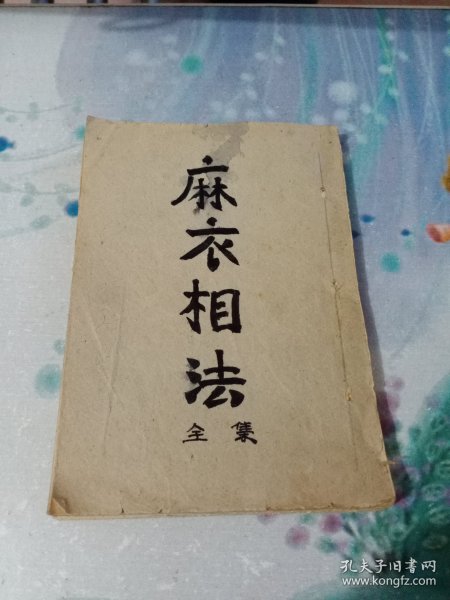 麻衣相法
全集
孔夫子旧书网
www.kongfz.com